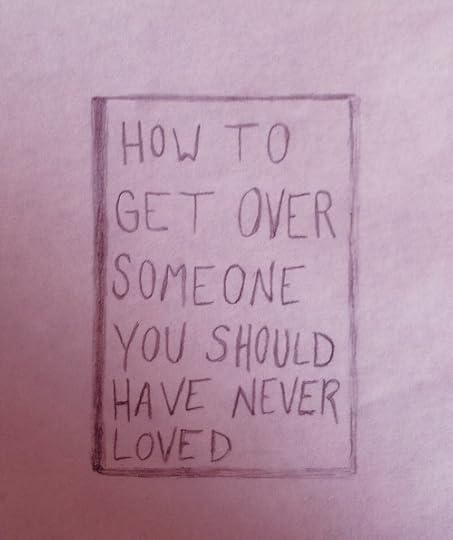 HOW TO
GET OVER
SOMEONE
YOU SHOULD
HAVE NEVER
LOVED